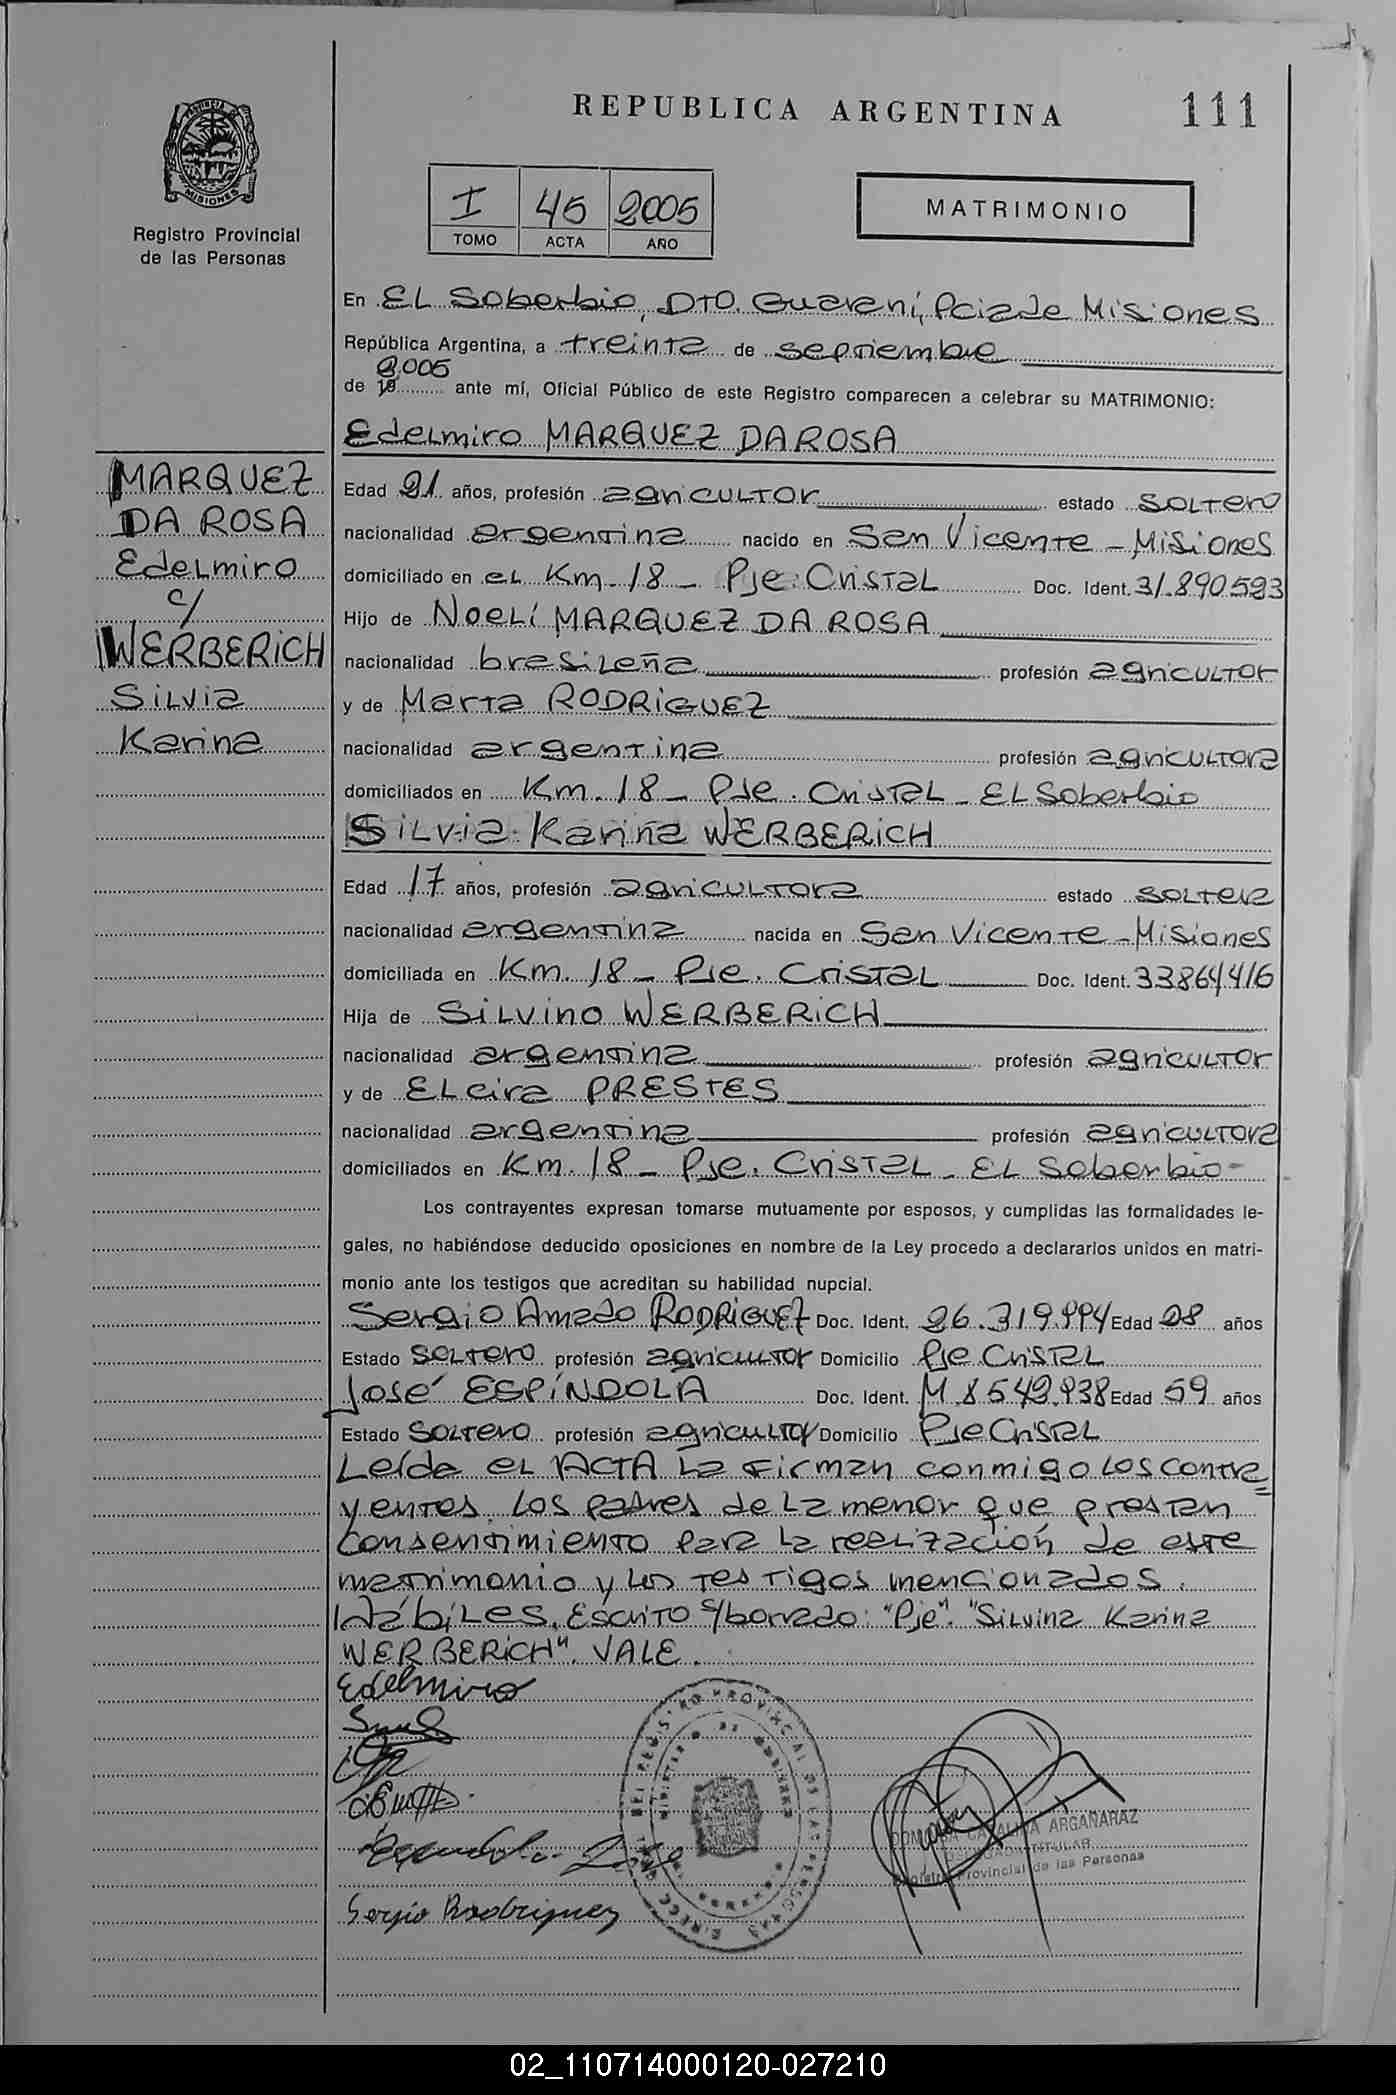 REPUBLICA ARGENTINA 111
PROVINCIA DE
MISIONES
Registro Provincial
de las Personas
I 45 2005
TOMO ACTA AÑO
MATRIMONIO
En EL Soberbio, DTO. Guaraní, Pcia de Misiones
República Argentina, a treinta de septiembre
2.005
de 19 ante mí, Oficial Público de este Registro comparecen a celebrar su MATRIMONIO:
Edelmiro MARQUEZ DA ROSA
MARQUEZ
DA ROSA
Edelmiro
c/
WERBERICH
Silvia
Karina
Edad 21 años, profesión agricultor estado soltero
nacionalidad argentina nacido en San Vicente - Misiones
domiciliado en el Km. 18 - Pje. Cristal Doc. Ident. 31.890.593
Hijo de Noelí MARQUEZ DA ROSA
nacionalidad brasileña profesión agricultor
y de Marta RODRIGUEZ
nacionalidad argentina profesión agricultora
domiciliados en Km. 18 - Pje. Cristal - EL Soberbio
Silvia Karina WERBERICH
Edad 17 años, profesión agricultora estado soltera
nacionalidad argentina nacida en San Vicente - Misiones
domiciliada en Km. 18 - Pje. Cristal Doc. Ident. 33864416
Hija de Silvino WERBERICH
nacionalidad argentina profesión agricultor
y de Elcira PRESTES
nacionalidad argentina profesión agricultora
domiciliados en Km. 18 - Pje. Cristal - EL Soberbio -
Los contrayentes expresan tomarse mutuamente por esposos, y cumplidas las formalidades le-
gales, no habiéndose deducido oposiciones en nombre de la Ley procedo a declararlos unidos en matri-
monio ante los testigos que acreditan su habilidad nupcial.
Sergio Amado RODRIGUEZ Doc. Ident. 26.319.994 Edad 28 años
Estado soltero profesión agricultor Domicilio Pje Cristal
José ESPÍNDOLA Doc. Ident. M 8.549.938 Edad 59 años
Estado soltero profesión agricultor Domicilio Pje Cristal
Leída el ACTA la firman conmigo los contra=
yentes, los padres de la menor que prestan
consentimiento para la realización de este
matrimonio y los testigos mencionados.
Hábiles. Escrito s/borrado: "Pje". "Silvina Karina
WERBERICH". VALE.
Edelmiro
Sergio Rodriguez
CATALINA ARGAÑARAZ
TITULAR
Registro Provincial de las Personas
02_110714000120-027210